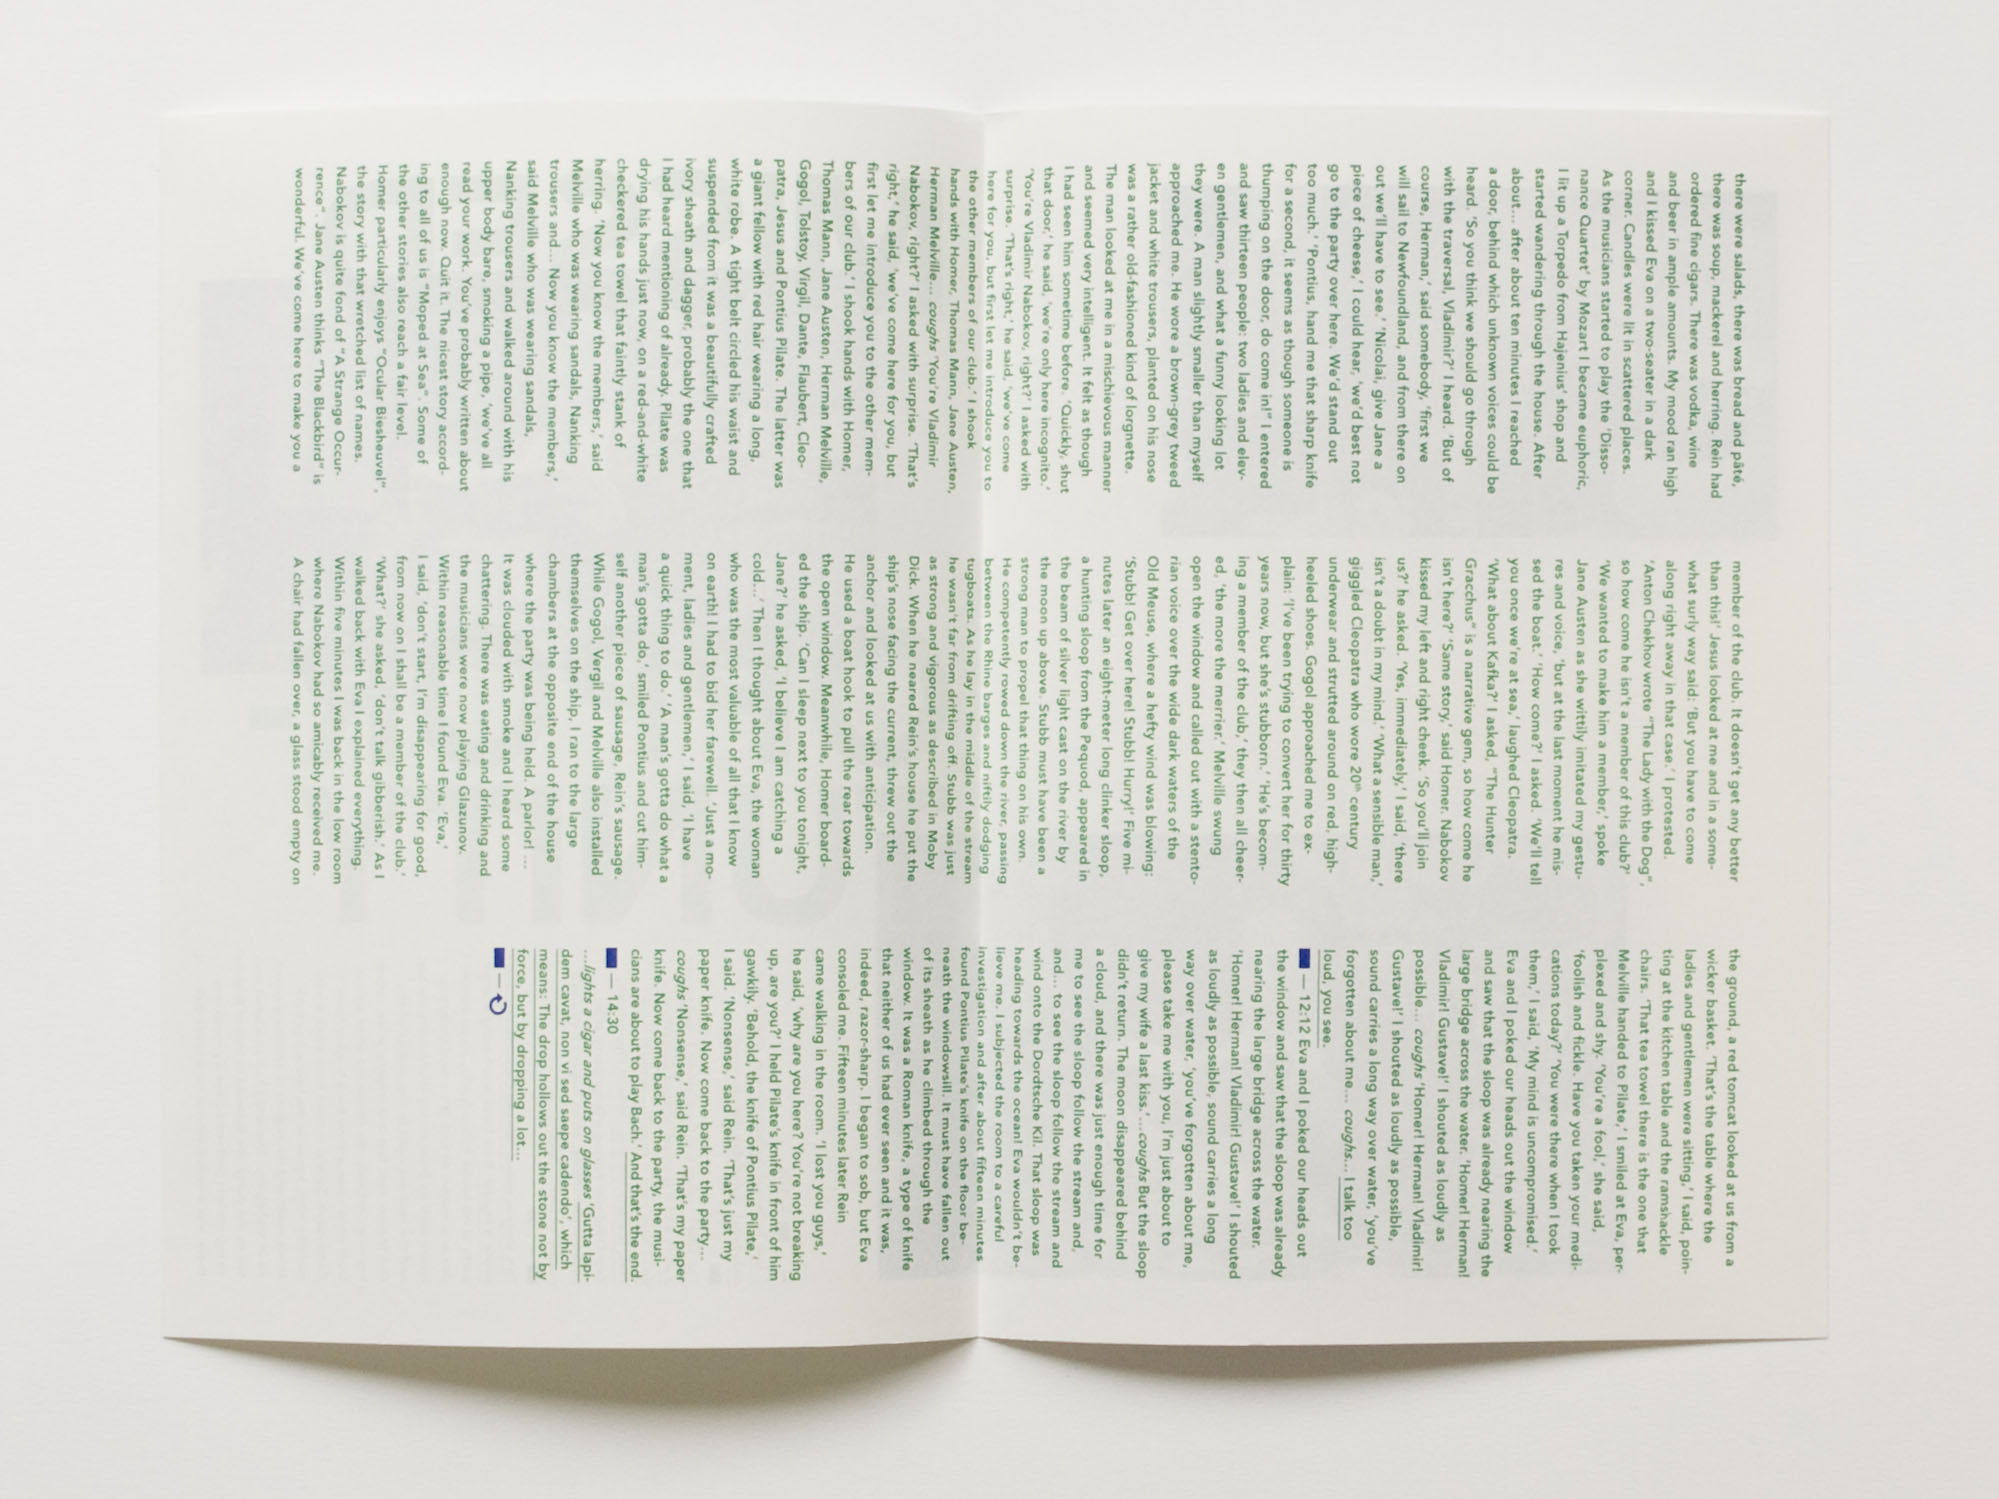 there were salads, there was bread and pâté,
there was soup, mackerel and herring. Rein had
ordered fine cigars. There was vodka, wine
and beer in ample amounts. My mood ran high
and I kissed Eva on a two-seater in a dark
corner. Candles were lit in scattered places.
As the musicians started to play the ‘Disso-
nance Quartet’ by Mozart I became euphoric,
I lit up a Torpedo from Hajenius’ shop and
started wandering through the house. After
about... after about ten minutes I reached
a door, behind which unknown voices could be
heard. ‘So you think we should go through
with the traversal, Vladimir?’ I heard. ‘But of
course, Herman,’ said somebody, ‘first we
will sail to Newfoundland, and from there on
out we’ll have to see.’ ‘Nicolai, give Jane a
piece of cheese,’ I could hear, ‘we’d best not
go to the party over here. We’d stand out
too much.’ ‘Pontius, hand me that sharp knife
for a second, it seems as though someone is
thumping on the door, do come in!” I entered
and saw thirteen people: two ladies and elev-
en gentlemen, and what a funny looking lot
they were. A man slightly smaller than myself
approached me. He wore a brown-grey tweed
jacket and white trousers, planted on his nose
was a rather old-fashioned kind of lorgnette.
The man looked at me in a mischievous manner
and seemed very intelligent. It felt as though
I had seen him sometime before. ‘Quickly, shut
that door,’ he said, ‘we’re only here incognito.’
‘You’re Vladimir Nabokov, right?’ I asked with
surprise. ‘That’s right,’ he said, ‘we’ve come
here for you, but first let me introduce you to
the other members of our club.’ I shook
hands with Homer, Thomas Mann, Jane Austen,
Herman Melville... coughs ‘You’re Vladimir
Nabokov, right?’ I asked with surprise. ‘That’s
right,’ he said, ‘we’ve come here for you, but
first let me introduce you to the other mem-
bers of our club.’ I shook hands with Homer,
Thomas Mann, Jane Austen, Herman Melville,
Gogol, Tolstoy, Virgil, Dante, Flaubert, Cleo-
patra, Jesus and Pontius Pilate. The latter was
a giant fellow with red hair wearing a long,
white robe. A tight belt circled his waist and
suspended from it was a beautifully crafted
ivory sheath and dagger, probably the one that
I had heard mentioning of already. Pilate was
drying his hands just now, on a red-and-white
checkered tea towel that faintly stank of
herring. ‘Now you know the members,’ said
Melville who was wearing sandals, Nanking
trousers and... Now you know the members,’
said Melville who was wearing sandals,
Nanking trousers and walked around with his
upper body bare, smoking a pipe, ‘we’ve all
read your work. You’ve probably written about
enough now. Quit it. The nicest story accord-
ing to all of us is “Moped at Sea”. Some of
the other stories also reach a fair level.
Homer particularly enjoys “Ocular Biesheuvel”,
the story with that wretched list of names.
Nabokov is quite fond of “A Strange Occur-
rence”. Jane Austen thinks “The Blackbird” is
wonderful. We’ve come here to make you a
member of the club. It doesn’t get any better
than this!’ Jesus looked at me and in a some-
what surly way said: ‘But you have to come
along right away in that case.’ I protested.
‘Anton Chekhov wrote “The Lady with the Dog”,
so how come he isn’t a member of this club?’
‘We wanted to make him a member,’ spoke
Jane Austen as she wittily imitated my gestu-
res and voice, ‘but at the last moment he mis-
sed the boat.’ ‘How come?’ I asked. ‘We’ll tell
you once we’re at sea,’ laughed Cleopatra.
‘What about Kafka?’ I asked, “The Hunter
Gracchus” is a narrative gem, so how come he
isn’t here?’ ‘Same story,’ said Homer. Nabokov
kissed my left and right cheek. ‘So you’ll join
us?’ he asked. ‘Yes, immediately,’ I said, ‘there
isn’t a doubt in my mind.’ ‘What a sensible man,’
giggled Cleopatra who wore 20th century
underwear and strutted around on red, high-
heeled shoes. Gogol approached me to ex-
plain: ‘I’ve been trying to convert her for thirty
years now, but she’s stubborn.’ ‘He’s becom-
ing a member of the club,’ they then all cheer-
ed, ‘the more the merrier.’ Melville swung
open the window and called out with a stento-
rian voice over the wide dark waters of the
Old Meuse, where a hefty wind was blowing:
‘Stubb! Get over here! Stubb! Hurry!’ Five mi-
nutes later an eight-meter long clinker sloop,
a hunting sloop from the Pequod, appeared in
the beam of silver light cast on the river by
the moon up above. Stubb must have been a
strong man to propel that thing on his own.
He competently rowed down the river, passing
between the Rhine barges and niftily dodging
tugboats. As he lay in the middle of the stream
he wasn’t far from drifting off. Stubb was just
as strong and vigorous as described in Moby
Dick. When he neared Rein’s house he put the
ship’s nose facing the current, threw out the
anchor and looked at us with anticipation.
He used a boat hook to pull the rear towards
the open window. Meanwhile, Homer board-
ed the ship. ‘Can I sleep next to you tonight,
Jane?’ he asked, ‘I believe I am catching a
cold...’ Then I thought about Eva, the woman
who was the most valuable of all that I know
on earth! I had to bid her farewell. ‘Just a mo-
ment, ladies and gentlemen,’ I said, ‘I have
a quick thing to do.’ ‘A man’s gotta do what a
man’s gotta do,’ smiled Pontius and cut him-
self another piece of sausage, Rein’s sausage.
While Gogol, Vergil and Melville also installed
themselves on the ship, I ran to the large
chambers at the opposite end of the house
where the party was being held. A parlor! ...
It was clouded with smoke and I heard some
chattering. There was eating and drinking and
the musicians were now playing Glazunov.
Within reasonable time I found Eva. ‘Eva,’
I said, ‘don’t start, I’m disappearing for good,
from now on I shall be a member of the club.’
‘What?’ she asked, ‘don’t talk gibberish.’ As I
walked back with Eva I explained everything.
Within five minutes I was back in the low room
where Nabokov had so amicably received me.
A chair had fallen over, a glass stood empty on
the ground, a red tomcat looked at us from a
wicker basket. ‘That’s the table where the
ladies and gentlemen were sitting,’ I said, poin-
ting at the kitchen table and the ramshackle
chairs. ‘That tea towel there is the one that
Melville handed to Pilate,’ I smiled at Eva, per-
plexed and shy. ‘You’re a fool,’ she said,
‘foolish and fickle. Have you taken your medi-
cations today?’ ‘You were there when I took
them,’ I said, ‘My mind is uncompromised.’
Eva and I poked our heads out the window
and saw that the sloop was already nearing the
large bridge across the water. ‘Homer! Herman!
Vladimir! Gustave!’ I shouted as loudly as
possible... coughs ‘Homer! Herman! Vladimir!
Gustave!’ I shouted as loudly as possible,
sound carries a long way over water, ‘you’ve
forgotten about me... coughs... I talk too
loud, you see.
— 12:12 Eva and I poked our heads out
the window and saw that the sloop was already
nearing the large bridge across the water.
‘Homer! Herman! Vladimir! Gustave!’ I shouted
as loudly as possible, sound carries a long
way over water, ‘you’ve forgotten about me,
please take me with you, I’m just about to
give my wife a last kiss.’ ...coughs But the sloop
didn’t return. The moon disappeared behind
a cloud, and there was just enough time for
me to see the sloop follow the stream and,
and... to see the sloop follow the stream and
wind onto the Dordtsche Kil. That sloop was
heading towards the ocean! Eva wouldn’t be-
lieve me. I subjected the room to a careful
investigation and after about fifteen minutes
found Pontius Pilate’s knife on the floor be-
neath the windowsill. It must have fallen out
of its sheath as he climbed through the
window. It was a Roman knife, a type of knife
that neither of us had ever seen and it was,
indeed, razor-sharp. I began to sob, but Eva
consoled me. Fifteen minutes later Rein
came walking in the room. ‘I lost you guys,’
he said, ‘why are you here? You’re not breaking
up, are you?’ I held Pilate’s knife in front of him
gawkily. ‘Behold, the knife of Pontius Pilate,’
I said. ‘Nonsense,’ said Rein. ‘That’s just my
paper knife. Now come back to the party...
coughs ‘Nonsense,’ said Rein. ‘That’s my paper
knife. Now come back to the party, the musi-
cians are about to play Bach.’ And that’s the end.
— 14:30
...lights a cigar and puts on glasses ‘Gutta lapi-
dem cavat, non vi sed saepe cadendo’, which
means: The drop hollows out the stone not by
force, but by dropping a lot...
—